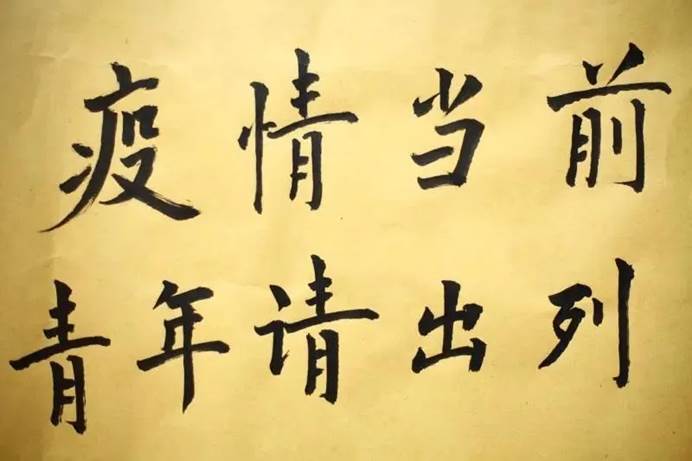 疫情当前
青年请出列